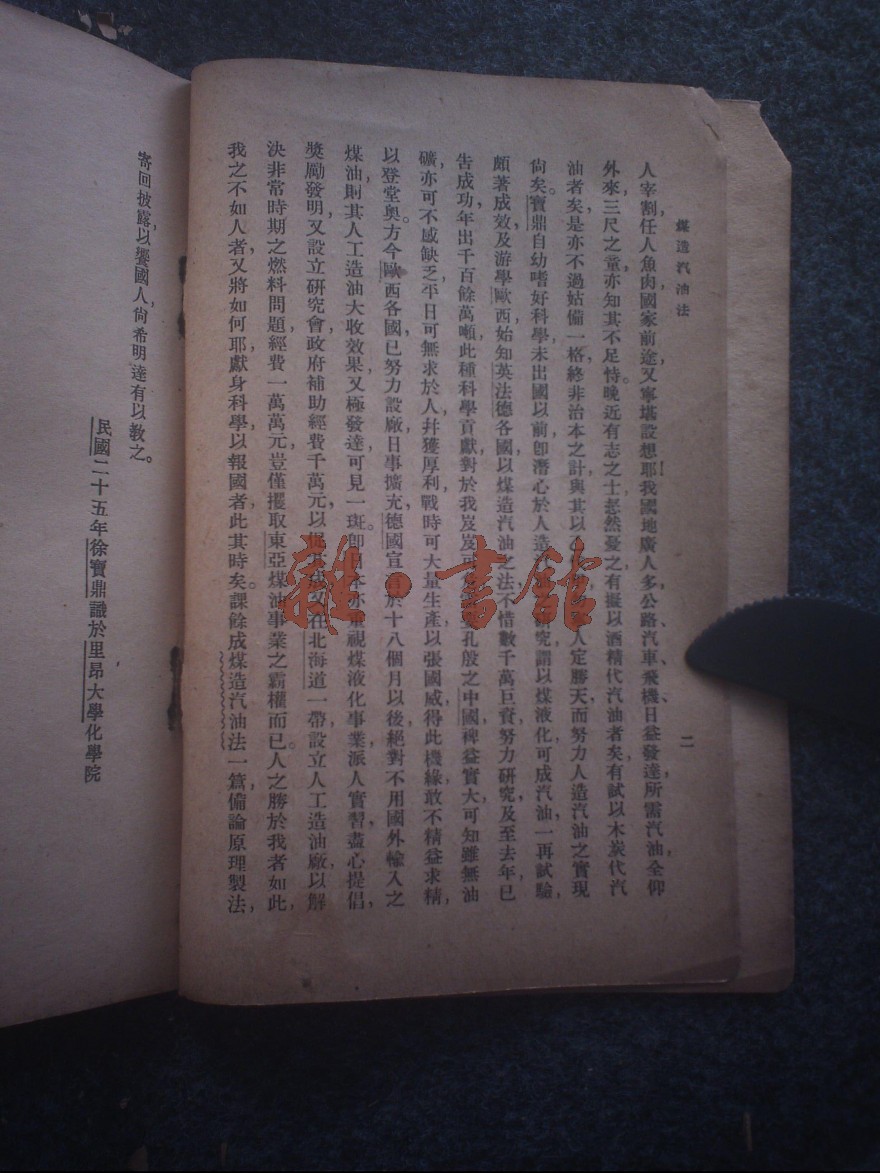 煤造汽油法
二
人宰割，任人魚肉，國家前途，又寧堪設想耶，我國地廣人多，公路、汽車、飛機、日益發達，所需汽油，全仰
外來，三尺之童，亦知其不足恃。晚近有志之士，惄然憂之，有擬以酒精代汽油者矣，有試以木炭代汽
油者矣，是亦不過姑備一格，終非治本之計，與其以 人定勝天，而努力人造汽油之實現
尙矣。寶鼎自幼嗜好科學，未出國以前，卽潛心於人造 究，謂以煤液化可成汽油，一再試驗，
頗著成效，及游學歐西，始知英法德各國，以煤造汽油之法，不惜數千萬巨資，努力研究，及至去年，已
告成功，年出千百餘萬噸，此種科學貢獻，對於我岌岌可 孔殷之中國，裨益實大，可知雖無油
礦，亦可不感缺乏，平日可無求於人，幷獲厚利，戰時可大量生產，以張國威，得此機緣，敢不精益求精，
以登堂奧。方今歐西各國，已努力設廠，日事擴充，德國宣言於十八個月以後，絕對不用國外輸入之
煤油，則其人工造油大收效果，又極發達，可見一斑。卽日本亦重視煤液化事業，派人實習，盡心提倡，
獎勵發明，又設立研究會，政府補助經費千萬元，以促其成，又在北海道一帶，設立人工造油廠，以解
決非常時期之燃料問題，經費一萬萬元，豈僅攫取東亞煤油事業之霸權而已。人之勝於我者如此，
我之不如人者，又將如何耶，獻身科學以報國者，此其時矣。課餘成煤造汽油法一篇，備論原理製法，
寄回披露，以饗國人，尙希明達有以敎之。
民國二十五年徐寶鼎識於里昂大學化學院
雜·書館